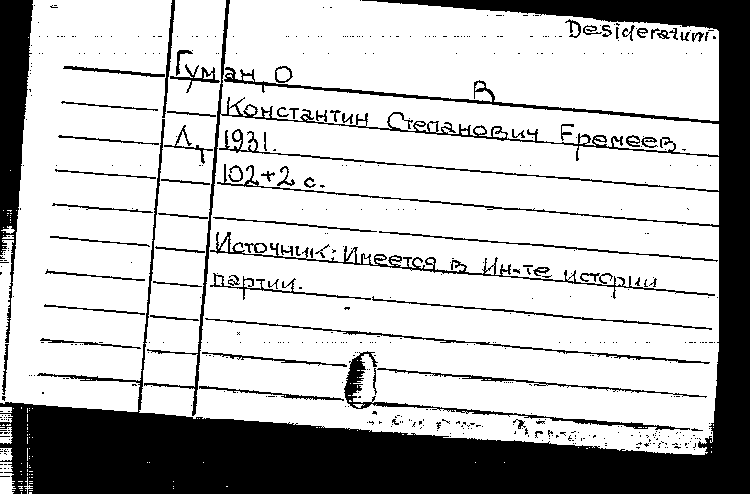 Desideratum.
Гуман, О
В
Константин Степанович Еремеев.
Л, 1931.
102+2 с.
Источник: Имеется в Ин-те истории
партии.